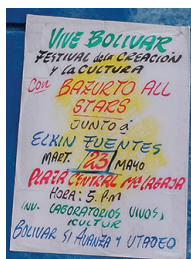 VIVE BOLIVAR
FESTIVAL de la CREACIÓN
y la CULTURA
con BAZURTO ALL
STARS
JUNTO á
ELKIN FUENTES
MART. 23 MAYO
PLAZA CENTRAL
HORA: 5. PM
INV. LABORATORIOS VIVOS,
ICULTUR
BOLIVAR SI AVANZA Y UTADEO